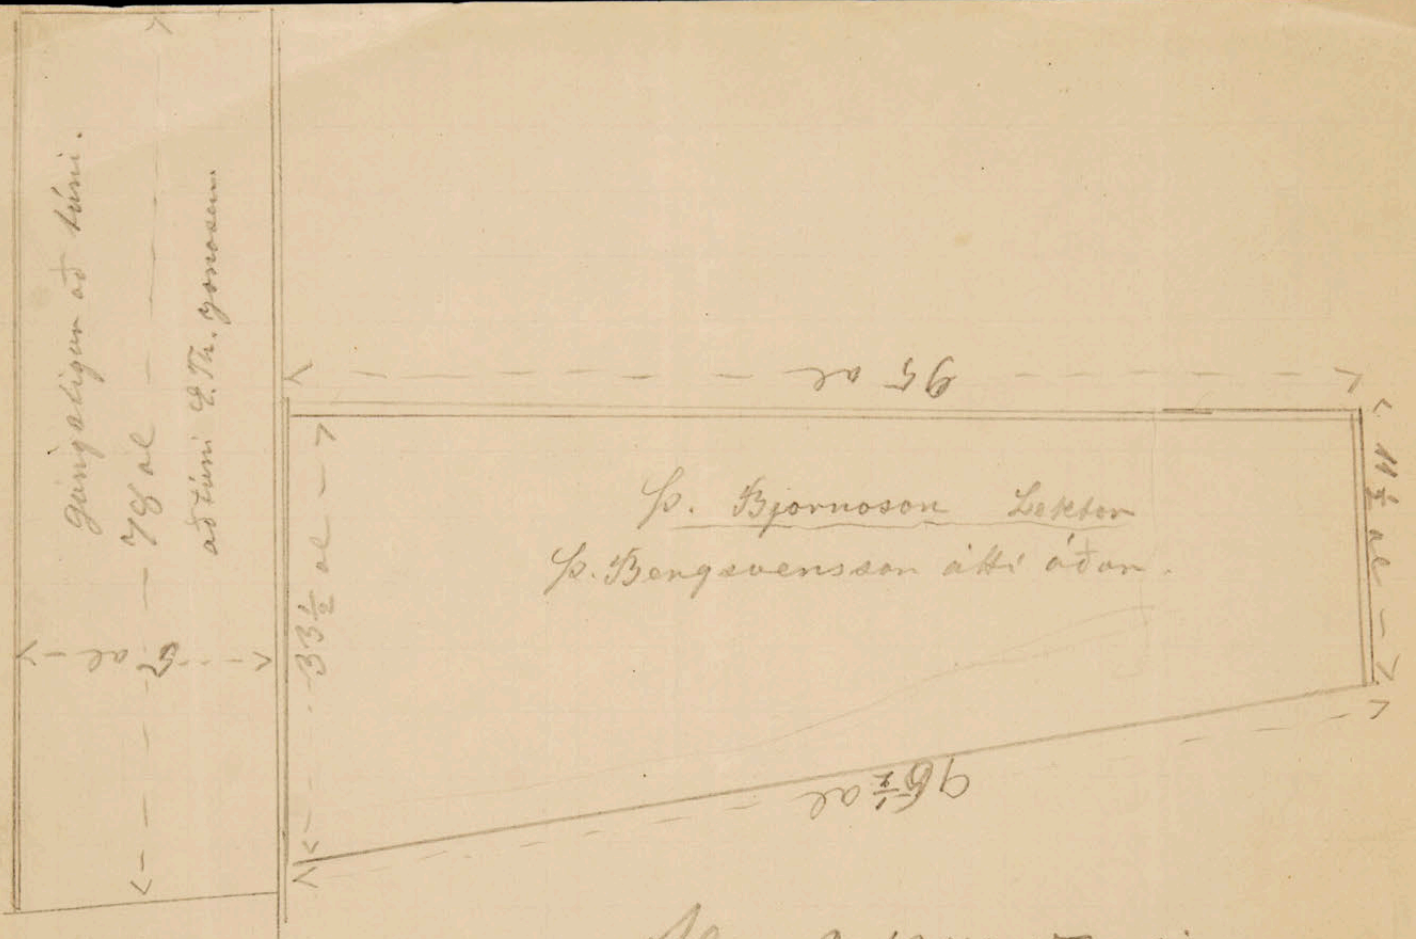 Gángstígur að túni.
78 al
að túni E. Th. Jónassen
5 al
33½ al
95 al
Þ. Bjornoson Lektor
Þ. Bergsvensson átti áðar.
11½ al
96½ al